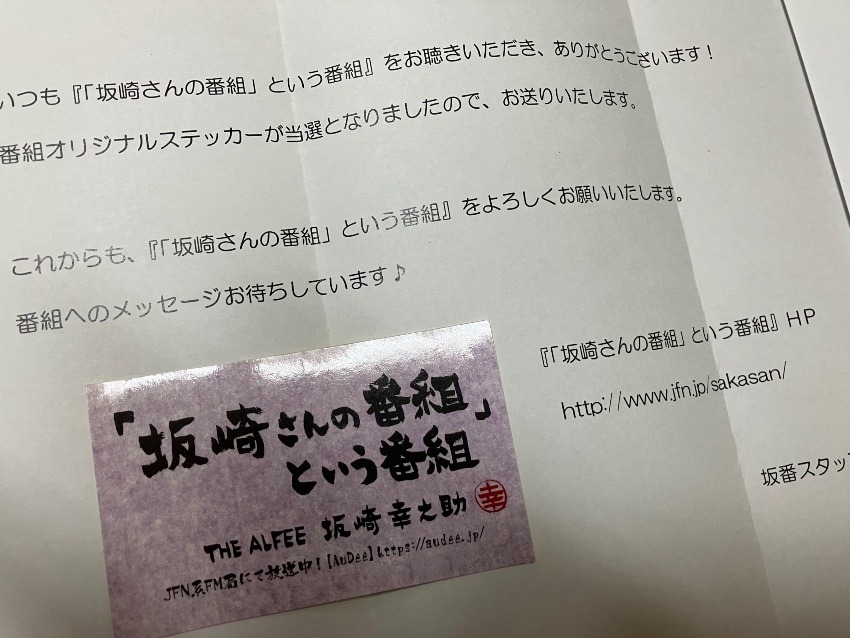 いつも『「坂崎さんの番組」という番組』をお聴きいただき、ありがとうございます！
番組オリジナルステッカーが当選となりましたので、お送りいたします。
これからも、『「坂崎さんの番組」という番組』をよろしくお願いいたします。
番組へのメッセージお待ちしています♪
『「坂崎さんの番組」という番組』ＨＰ
http://www.jfn.jp/sakasan/
坂番スタッフ
「坂崎さんの番組」
という番組
THE ALFEE 坂崎幸之助 幸
JFN系FM局にて放送中！[AuDee]https://audee.jp/